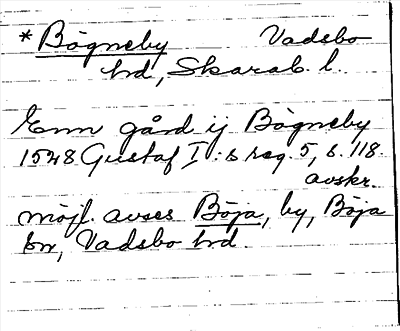 *Bögneby Vadsbo
hd, Skarab. l.
Enn gård ij Bögneby
1528 Gustaf I:s reg. 5, s. 118.
avskr.
möjl. avses Böja, by, Böja
sn, Vadsbo hd.